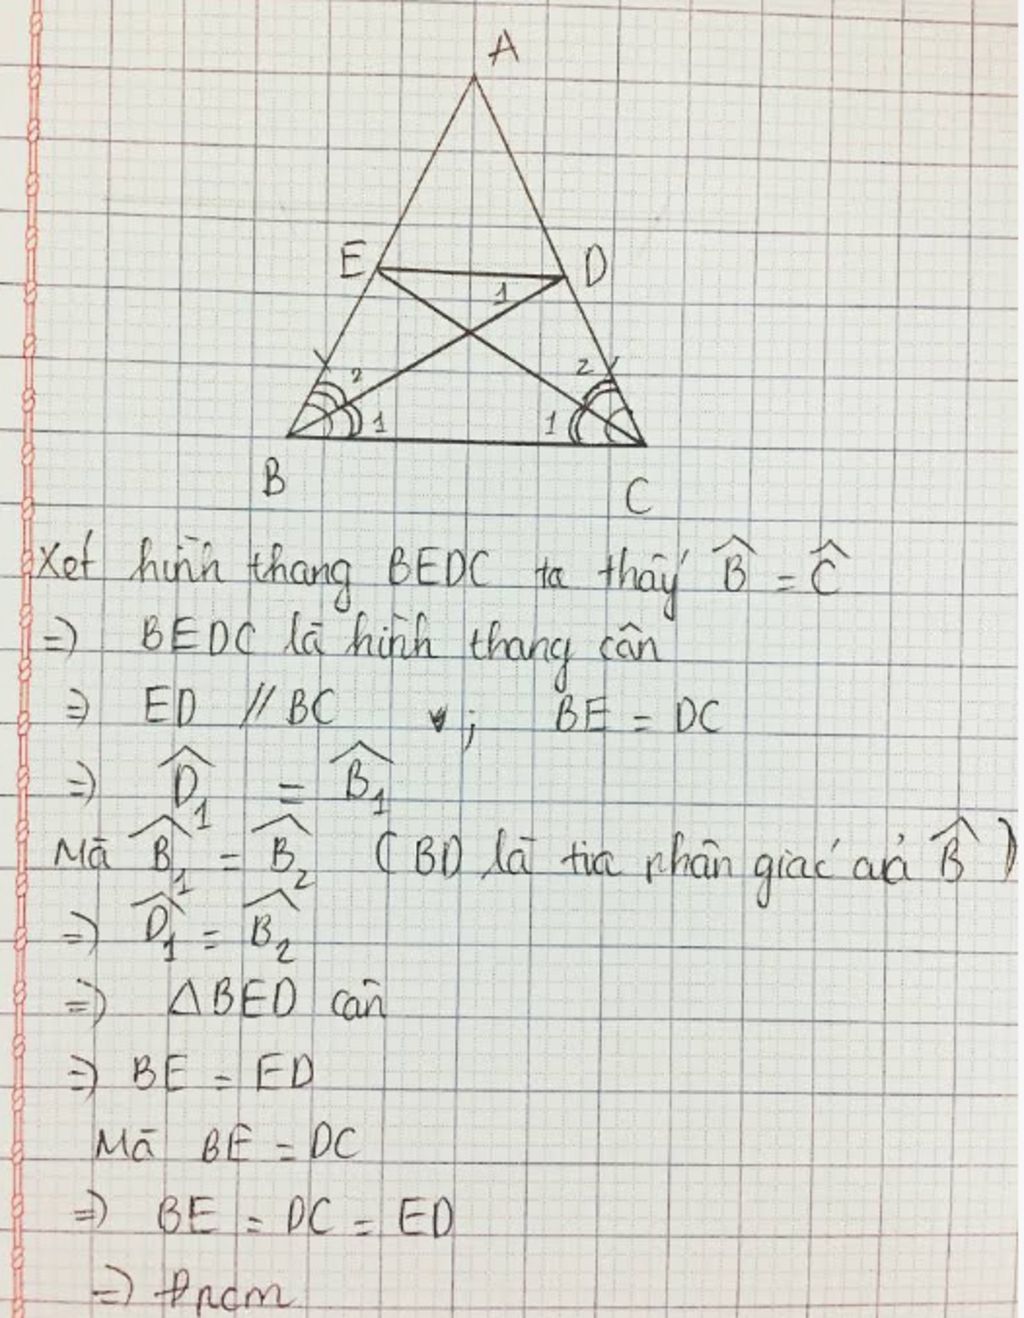 A
E
D
1
2
2
1
1
B
C
Xét hình thang BEDC ta thấy B̂ = Ĉ
=> BEDC là hình thang cân
=> ED // BC ; BE = DC
=> D̂₁ = B̂₁
Mà B̂₁ = B̂₂ ( BD là tia phân giác của B̂ )
=> D̂₁ = B̂₂
=> ΔBED cân
=> BE = ED
Mà BE = DC
=> BE = DC = ED
=> đpcm